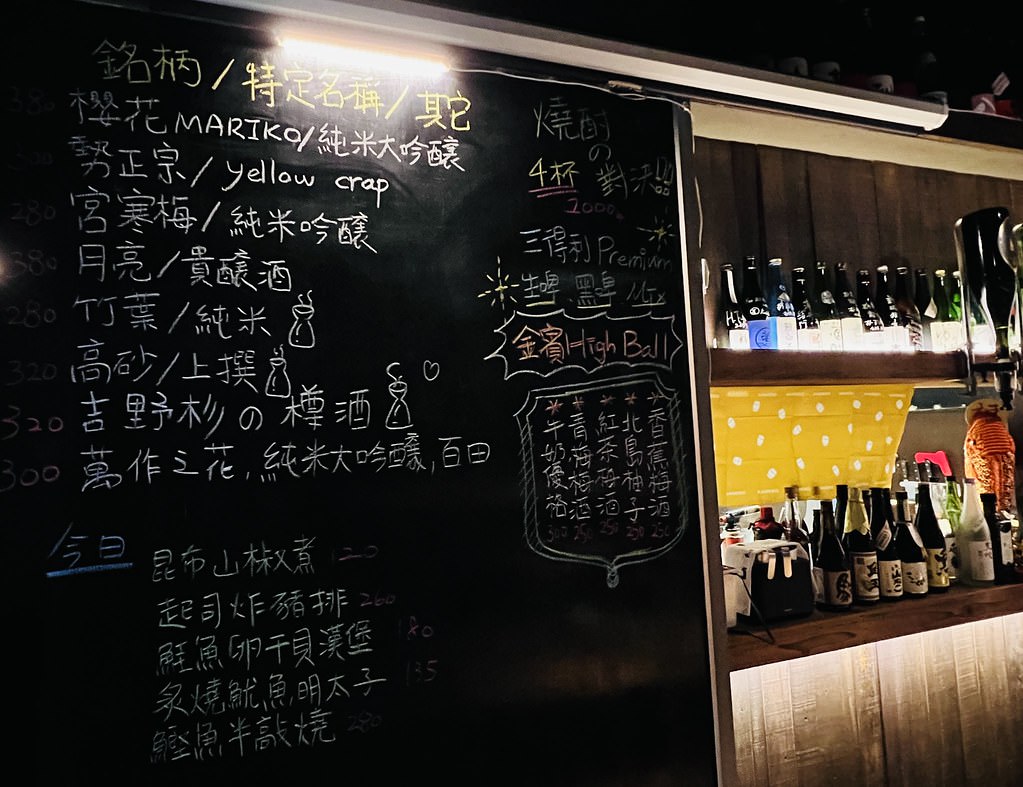 銘柄/特定名稱/其它
380 櫻花 MARIKO/純米大吟釀
300 勢正宗/yellow crap
280 宮寒梅/純米吟釀
380 月亮/貴釀酒
280 竹葉/純米
320 高砂/上撰
320 吉野杉の樽酒
300 萬作之花,純米大吟釀,百田
今日
昆布山椒煮 120
起司炸豬排 260
鮭魚卵干貝漢堡 180
炙燒魷魚明太子 135
鰹魚半敲燒 280
燒酎
の
4杯 對決
2000
三得利 Premium
生啤.黑啤.Mix
金賓High Ball
香蕉梅酒 250
北島柚子 250
紅茶梅酒 250
青梅梅酒 250
牛奶優格 300